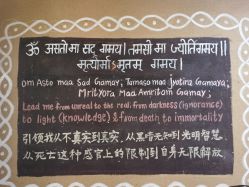 ॐ असतोमा सद् गमय। तमसोमा ज्योतिर्गमय॥
मृत्योर्माऽमृतम् गमय।
Om Asto maa Sad Gamay; Tamaso maa Jyotira Gamaya;
Mrityora Maa Amritam Gamay;
Lead me from unreal to the real; from darkness (ignorance)
to light (knowledge) & from death to immortality
引领我从不真实到真实, 从黑暗无知到光明智慧,
从死亡这种感官上的限制到自身无限解放